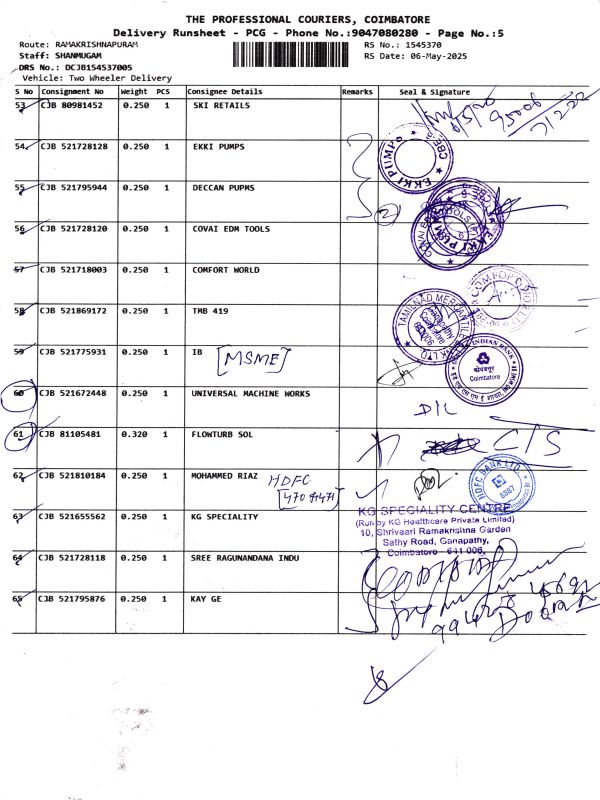 THE PROFESSIONAL COURIERS, COIMBATORE
Delivery Runsheet - PCG - Phone No.:9047080280 - Page No.:5
Route: RAMAKRISHNAPURAM
RS No.: 1545370
Staff: SHANMUGAM
RS Date: 06-May-2025
DRS No.: DCJB154537005
Vehicle: Two Wheeler Delivery
S No Consignment No Weight PCS Consignee Details Remarks Seal & Signature
53 CJB 80981452 0.250 1 SKI RETAILS
54 CJB 521728128 0.250 1 EKKI PUMPS
EKKI PUMPS
55 CJB 521795944 0.250 1 DECCAN PUPMS
2
56 CJB 521728120 0.250 1 COVAI EDM TOOLS
57 CJB 521718003 0.250 1 COMFORT WORLD
58 CJB 521869172 0.250 1 TMB 419
TAMILNAD MERCANTILE
59 CJB 521775931 0.250 1 IB [MSME]
INDIAN BANK
Coimbatore
60 CJB 521672448 0.250 1 UNIVERSAL MACHINE WORKS
D/L
61 CJB 81105481 0.320 1 FLOWTURB SOL
C/S
62 CJB 521810184 0.250 1 MOHAMMED RIAZ HDFC
HDFC BANK LTD.
63 CJB 521655562 0.250 1 KG SPECIALITY
KG SPECIALITY CENTRE
(Run by KG Healthcare Private Limited)
10, Shrivaari Ramakrishna Garden
Sathy Road, Ganapathy,
Coimbatore - 641 006.
64 CJB 521728118 0.250 1 SREE RAGUNANDANA INDU
65 CJB 521795876 0.250 1 KAY GE